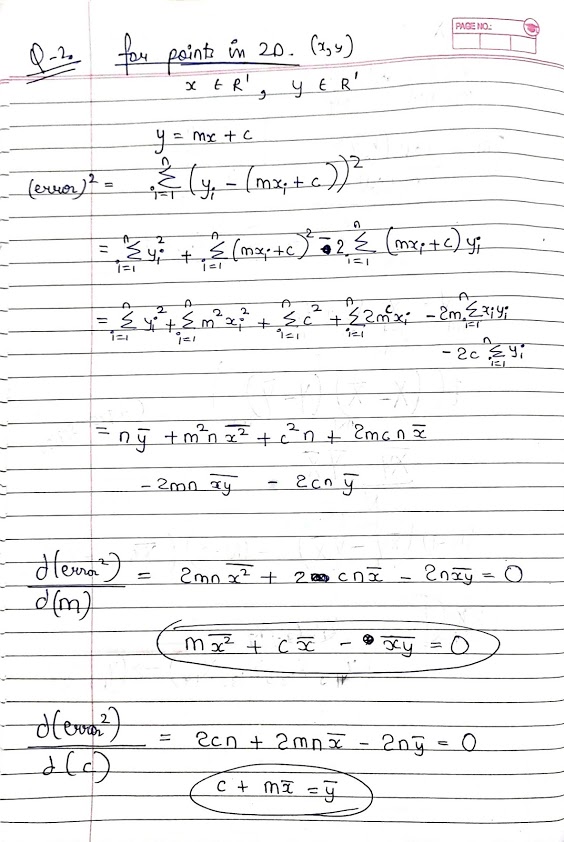 PAGE NO.:
Q-2. for points in 2D. (x,y)
x ∈ R¹, y ∈ R¹
y = mx + c
(error)² = Σᵢ₌₁ⁿ (yᵢ - (mxᵢ + c))²
= Σᵢ₌₁ⁿ yᵢ² + Σᵢ₌₁ⁿ (mxᵢ+c)² - 2 Σᵢ₌₁ⁿ (mxᵢ+c) yᵢ
= Σᵢ₌₁ⁿ yᵢ² + Σᵢ₌₁ⁿ m²xᵢ² + Σᵢ₌₁ⁿ c² + Σᵢ₌₁ⁿ 2mcxᵢ - 2m Σᵢ₌₁ⁿ xᵢyᵢ
- 2c Σᵢ₌₁ⁿ yᵢ
= n y̅ + m²n x̅²̅ + c²n + 2mcn x̅
- 2mn x̅y̅ - 2cn y̅
d(error²)/d(m) = 2mn x̅²̅ + 2cn x̅ - 2n x̅y̅ = 0
m x̅²̅ + c x̅ - x̅y̅ = 0
d(error²)/d(c) = 2cn + 2mn x̅ - 2n y̅ = 0
c + m x̅ = y̅